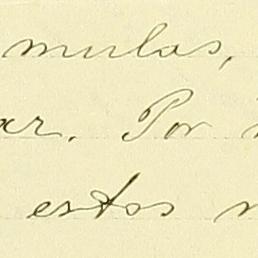 mulas,
ar. Por
estos